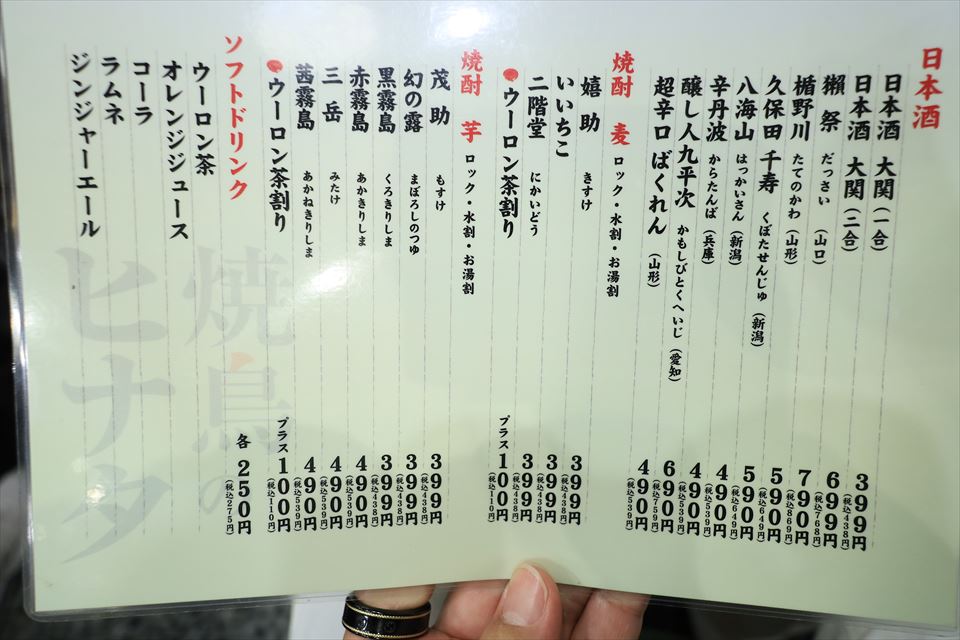 日本酒
日本酒 大関(一合) 399円(税込438円)
日本酒 大関(二合) 699円(税込768円)
獺祭 だっさい (山口) 790円(税込869円)
楯野川 たてのかわ (山形) 590円(税込649円)
久保田 千寿 くぼたせんじゅ (新潟) 590円(税込649円)
八海山 はっかいさん (新潟) 490円(税込539円)
辛丹波 からたんば (兵庫) 490円(税込539円)
醸し人九平次 かもしびとくへいじ (愛知) 690円(税込759円)
超辛口 ばくれん (山形) 490円(税込539円)
焼酎 麦 ロック・水割・お湯割
嬉助 きすけ 399円(税込438円)
いいちこ 399円(税込438円)
二階堂 にかいどう 399円(税込438円)
●ウーロン茶割り プラス100円(税込110円)
焼酎 芋 ロック・水割・お湯割
茂助 もすけ 399円(税込438円)
幻の露 まぼろしのつゆ 399円(税込438円)
黒霧島 くろきりしま 399円(税込438円)
赤霧島 あかきりしま 490円(税込539円)
三岳 みたけ 490円(税込539円)
茜霧島 あかねきりしま 490円(税込539円)
●ウーロン茶割り プラス100円(税込110円)
ソフトドリンク 各250円(税込275円)
ウーロン茶
オレンジジュース
コーラ
ラムネ
ジンジャーエール
焼鳥の
ヒナタ